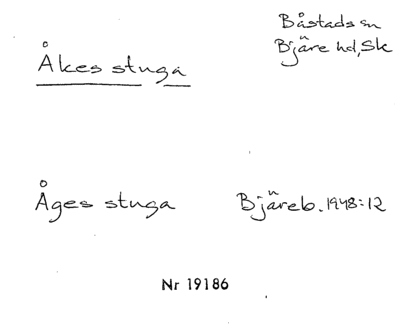 Båstads sn
Bjäre hd, Sk
Åkes stuga
Åges stuga
Bjäreb. 1948:12
Nr 19186